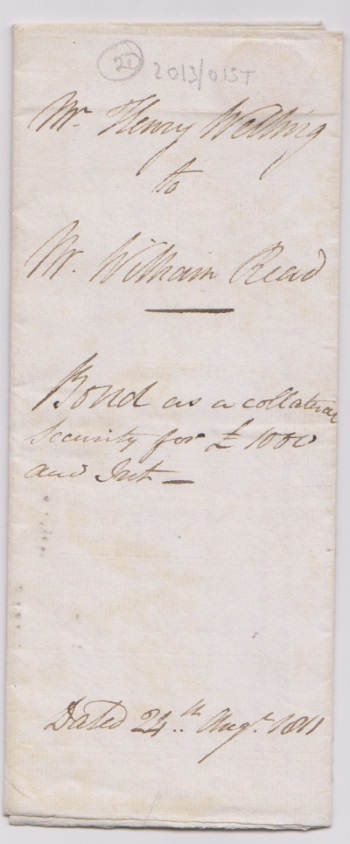 21 2013/015T
Mr. Henry Welling
to
Mr. William Read
Bond as a collateral
Security for £1000
and Int —
Dated 24th Augt. 1811